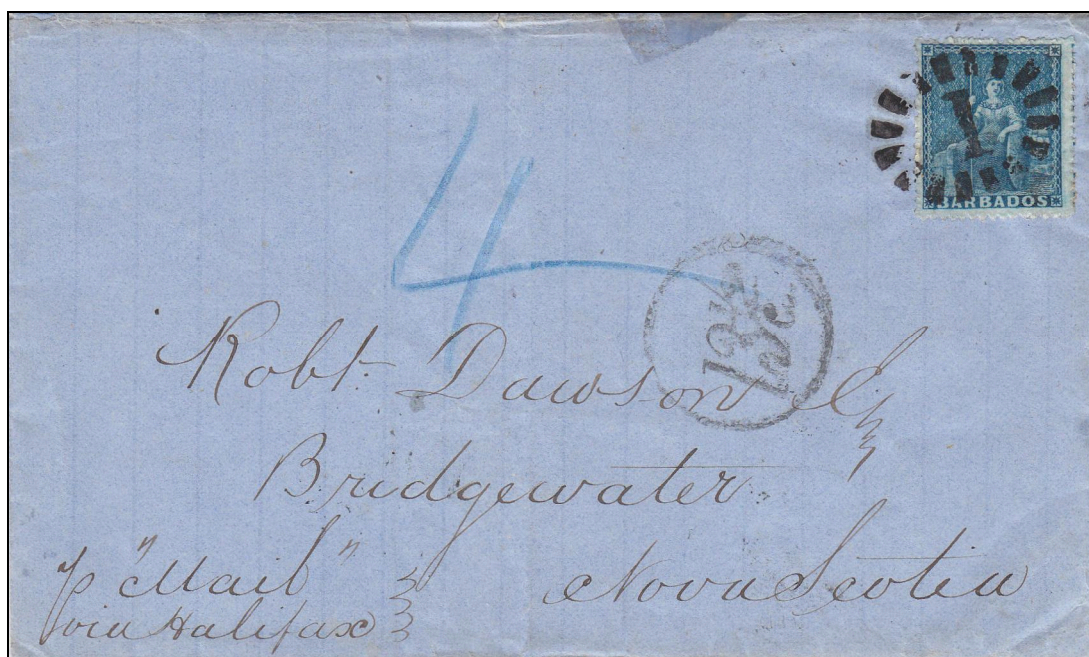 1
BARBADOS
4
12½ c.
Robt. Dawson Esq
Bridgewater
Nova Scotia
p "Mail"
via Halifax